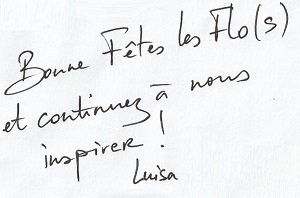 Bonne Fêtes les Flo(s)
et continuez à nous
inspirer !
Luisa